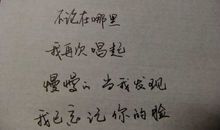 不论在哪里
我再次唱起
慢慢的 当我发现
我已忘记 你的脸